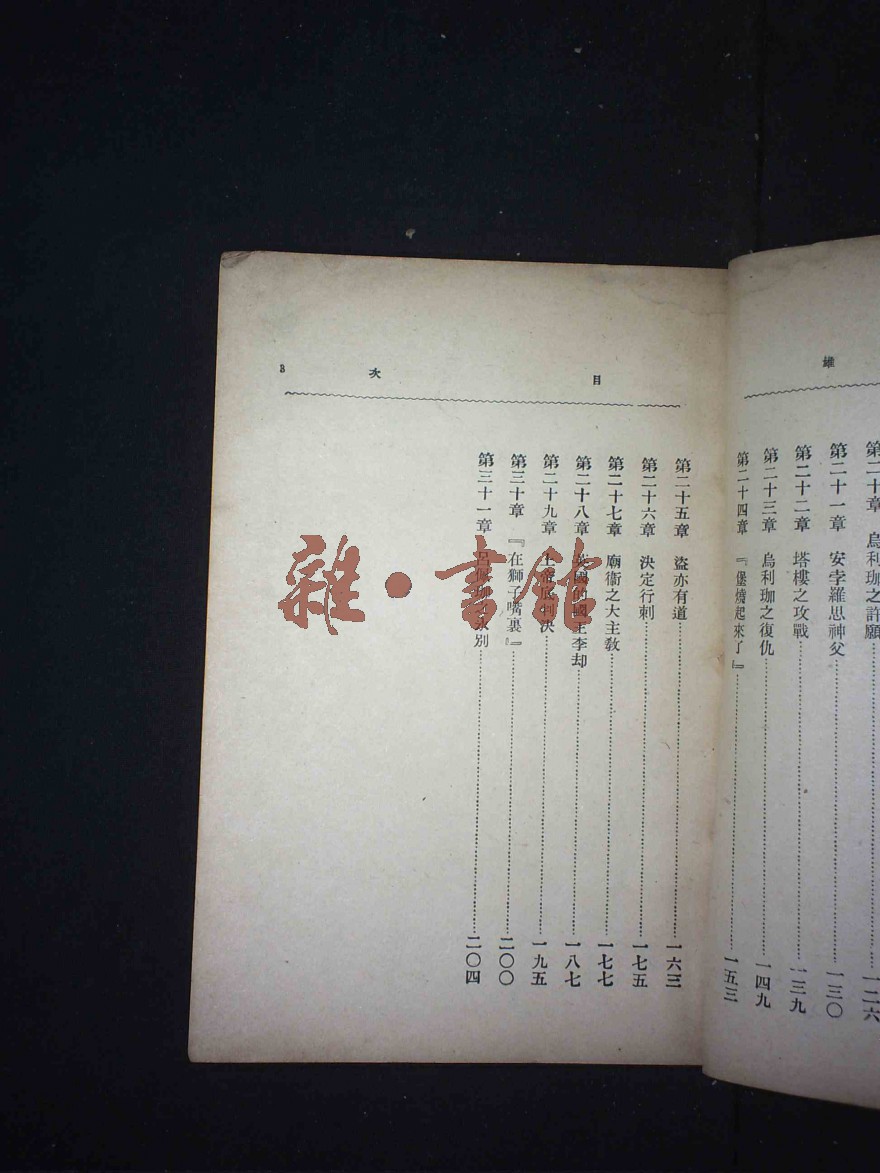 雄
第二十章 烏利珈之許願 一二六
第二十一章 安孛羅思神父 一三〇
第二十二章 塔樓之攻戰 一三九
第二十三章 烏利珈之復仇 一四九
第二十四章 『堡燒起來了』 一五三
目 次 3
第二十五章 盜亦有道 一六三
第二十六章 決定行刺 一七五
第二十七章 廟衞之大主敎 一七七
第二十八章 英國的國王李却 一八七
第二十九章 上帝底判決 一九五
第三十章 『在獅子嘴裏』 二〇〇
第三十一章 永別 二〇四
雜·書館